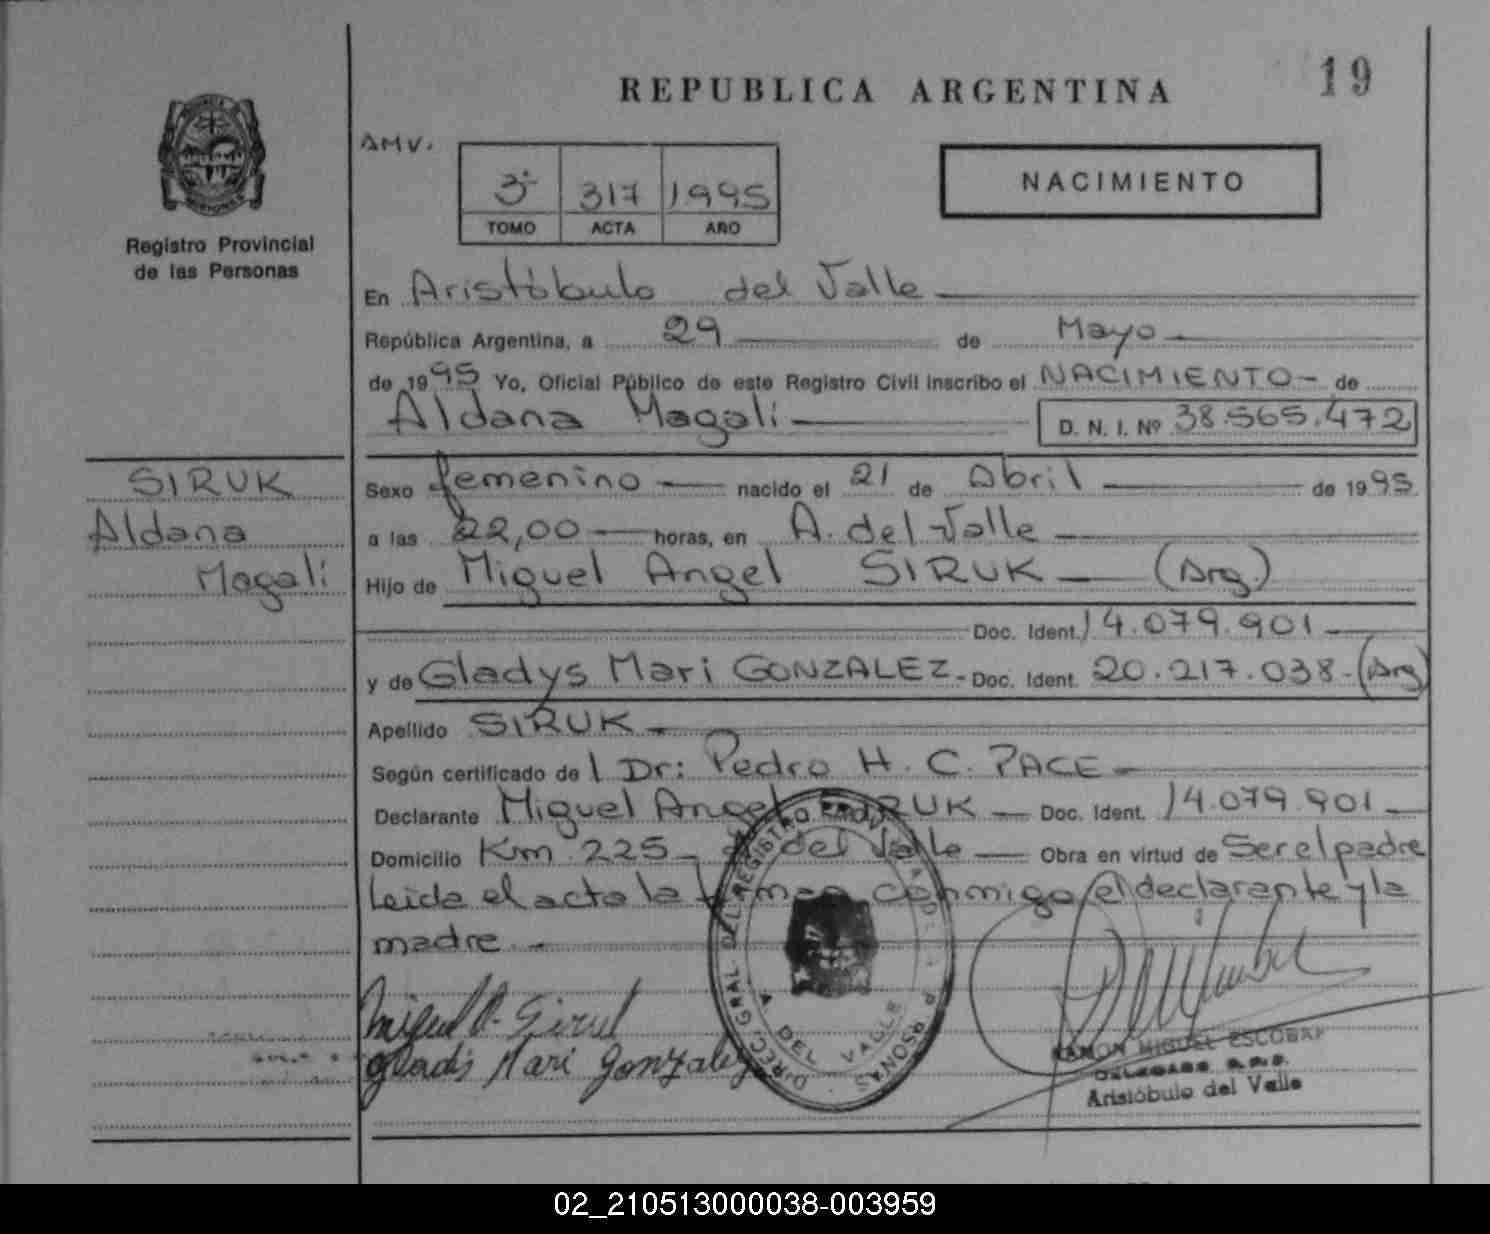 19
REPUBLICA ARGENTINA
AMV.
3º 317 1995
TOMO ACTA AÑO
NACIMIENTO
Registro Provincial
de las Personas
En Aristóbulo del Valle
República Argentina, a 29 de Mayo
de 1995 Yo, Oficial Público de este Registro Civil inscribo el NACIMIENTO - de
Aldana Magalí D. N. I. Nº 38.565.472
SIRUK
Aldana
Magalí
Sexo femenino nacido el 21 de Abril de 1995
a las 22,00 horas, en A. del Valle
Hijo de Miguel Angel SIRUK (Arg.)
Doc. Ident. 14.079.901
y de Gladys Mari GONZALEZ - Doc. Ident. 20.217.038 - (Arg)
Apellido SIRUK
Según certificado de l Dr: Pedro H. C. PACE
Declarante Miguel Angel SIRUK Doc. Ident. 14.079.901
Domicilio Km 225 - A. del Valle Obra en virtud de Ser el padre
Leida el acta la firman conmigo el declarante y la
madre
Miguel A. Siruk
Gladis Mari Gonzalez
DIREC. GRAL. DEL REGISTRO PROV. DE PERSONAS
A. DEL VALLE
RAMON MIGUEL ESCOBAR
DELEGADO R.P.P.
Aristóbulo del Valle
02_210513000038-003959